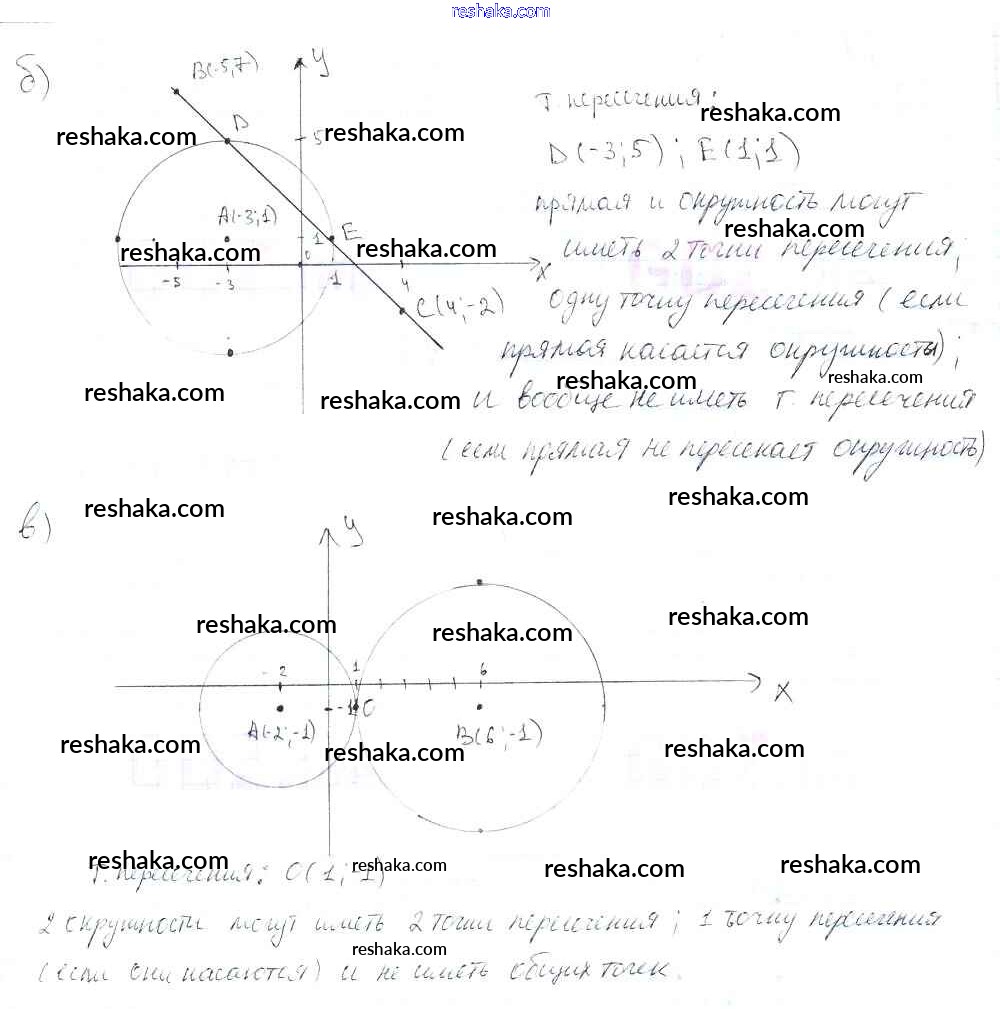 reshaka.com
б)
B(-5;7)
y
т. пересечения:
reshaka.com
D
5
reshaka.com
reshaka.com
D(-3;5); E(1;1)
прямая и окружность могут
A(-3;1)
1
E
reshaka.com
reshaka.com
reshaka.com
иметь 2 точки пересечения;
0
x
-5
-3
1
4
C(4;-2)
одну точку пересечения (если
прямая касается окружности);
reshaka.com
reshaka.com
reshaka.com
reshaka.com
и вообще не иметь т. пересечения
(если прямая не пересекает окружность)
reshaka.com
в)
reshaka.com
reshaka.com
y
reshaka.com
reshaka.com
reshaka.com
-2
1
6
x
-1
C
A(-2;-1)
B(6;-1)
reshaka.com
reshaka.com
reshaka.com
reshaka.com
reshaka.com
reshaka.com
reshaka.com
т. пересечения: C(1;-1)
2 окружности могут иметь 2 точки пересечения; 1 точку пересечения
reshaka.com
(если они касаются) и не иметь общих точек.